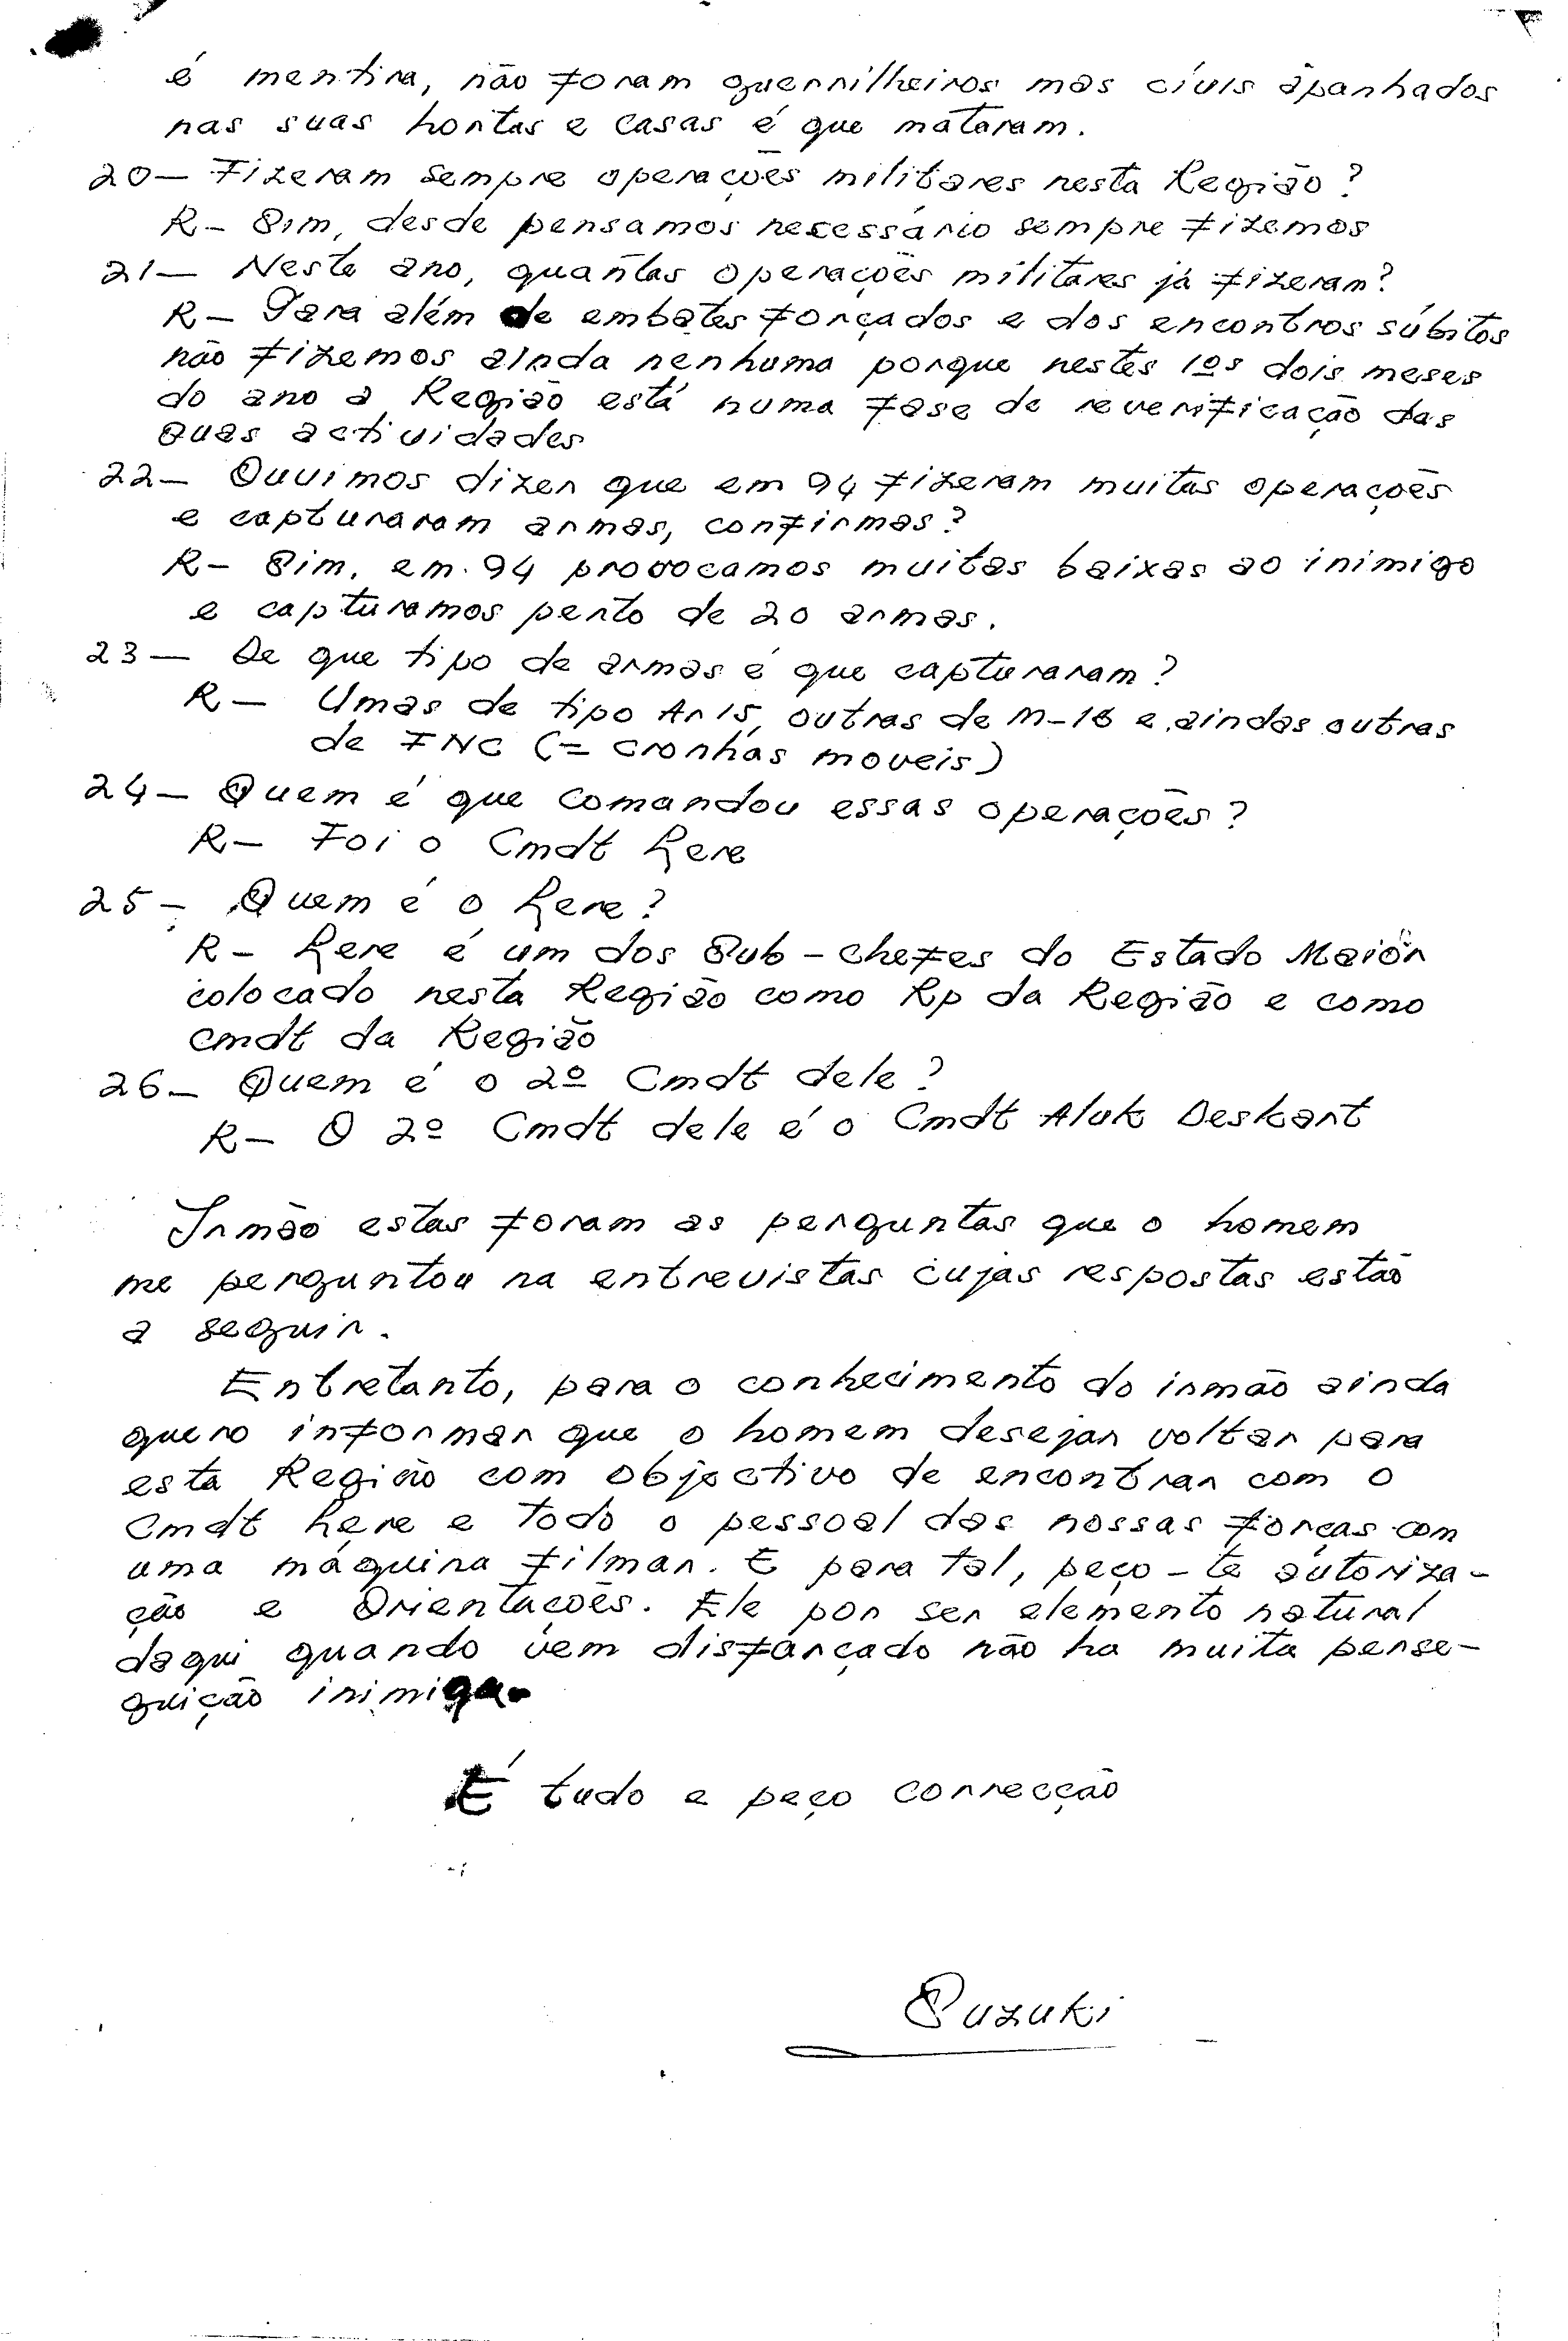 é mentira, não foram guerrilheiros mas cívis apanhados
nas suas hortas e casas é que mataram.
20 — Fizeram sempre operações militares nesta Região?
R — Sim, desde pensamos necessário sempre fizemos
21 — Neste ano, quantas operações militares já fizeram?
R — Para além de embates forçados e dos encontros súbitos
não fizemos ainda nenhuma porque nestes 1ºs dois meses
do ano a Região está numa fase de reverificação das
suas actividades
22 — Ouvimos dizer que em 94 fizeram muitas operações
e capturaram armas, confirmas?
R — Sim, em 94 provocamos muitas baixas ao inimigo
e capturamos perto de 20 armas.
23 — De que tipo de armas é que capturaram?
R — Umas de tipo Ar15, outras de M-16 e aindas outras
de FNC (= cronhas moveis)
24 — Quem é que comandou essas operações?
R — Foi o Cmdt Lere
25 — Quem é o Lere?
R — Lere é um dos Sub-chefes do Estado Maiór
colocado nesta Região como Rp da Região e como
cmdt da Região
26 — Quem é o 2º Cmdt dele?
R — O 2º Cmdt dele é o Cmdt Aluk Deskart
Irmão estas foram as perguntas que o homem
me perguntou na entrevistas cujas respostas estão
a seguir.
Entretanto, para o conhecimento do irmão ainda
quero informar que o homem desejar voltar para
esta Região com objectivo de encontrar com o
Cmdt Lere e todo o pessoal das nossas forças com
uma máquina filmar. E para tal, peço-te autoriza-
ção e Orientações. Ele por ser elemento natural
daqui quando vem disfarçado não ha muita perse-
guição inimiga.
É tudo e peço correcção
Suzuki